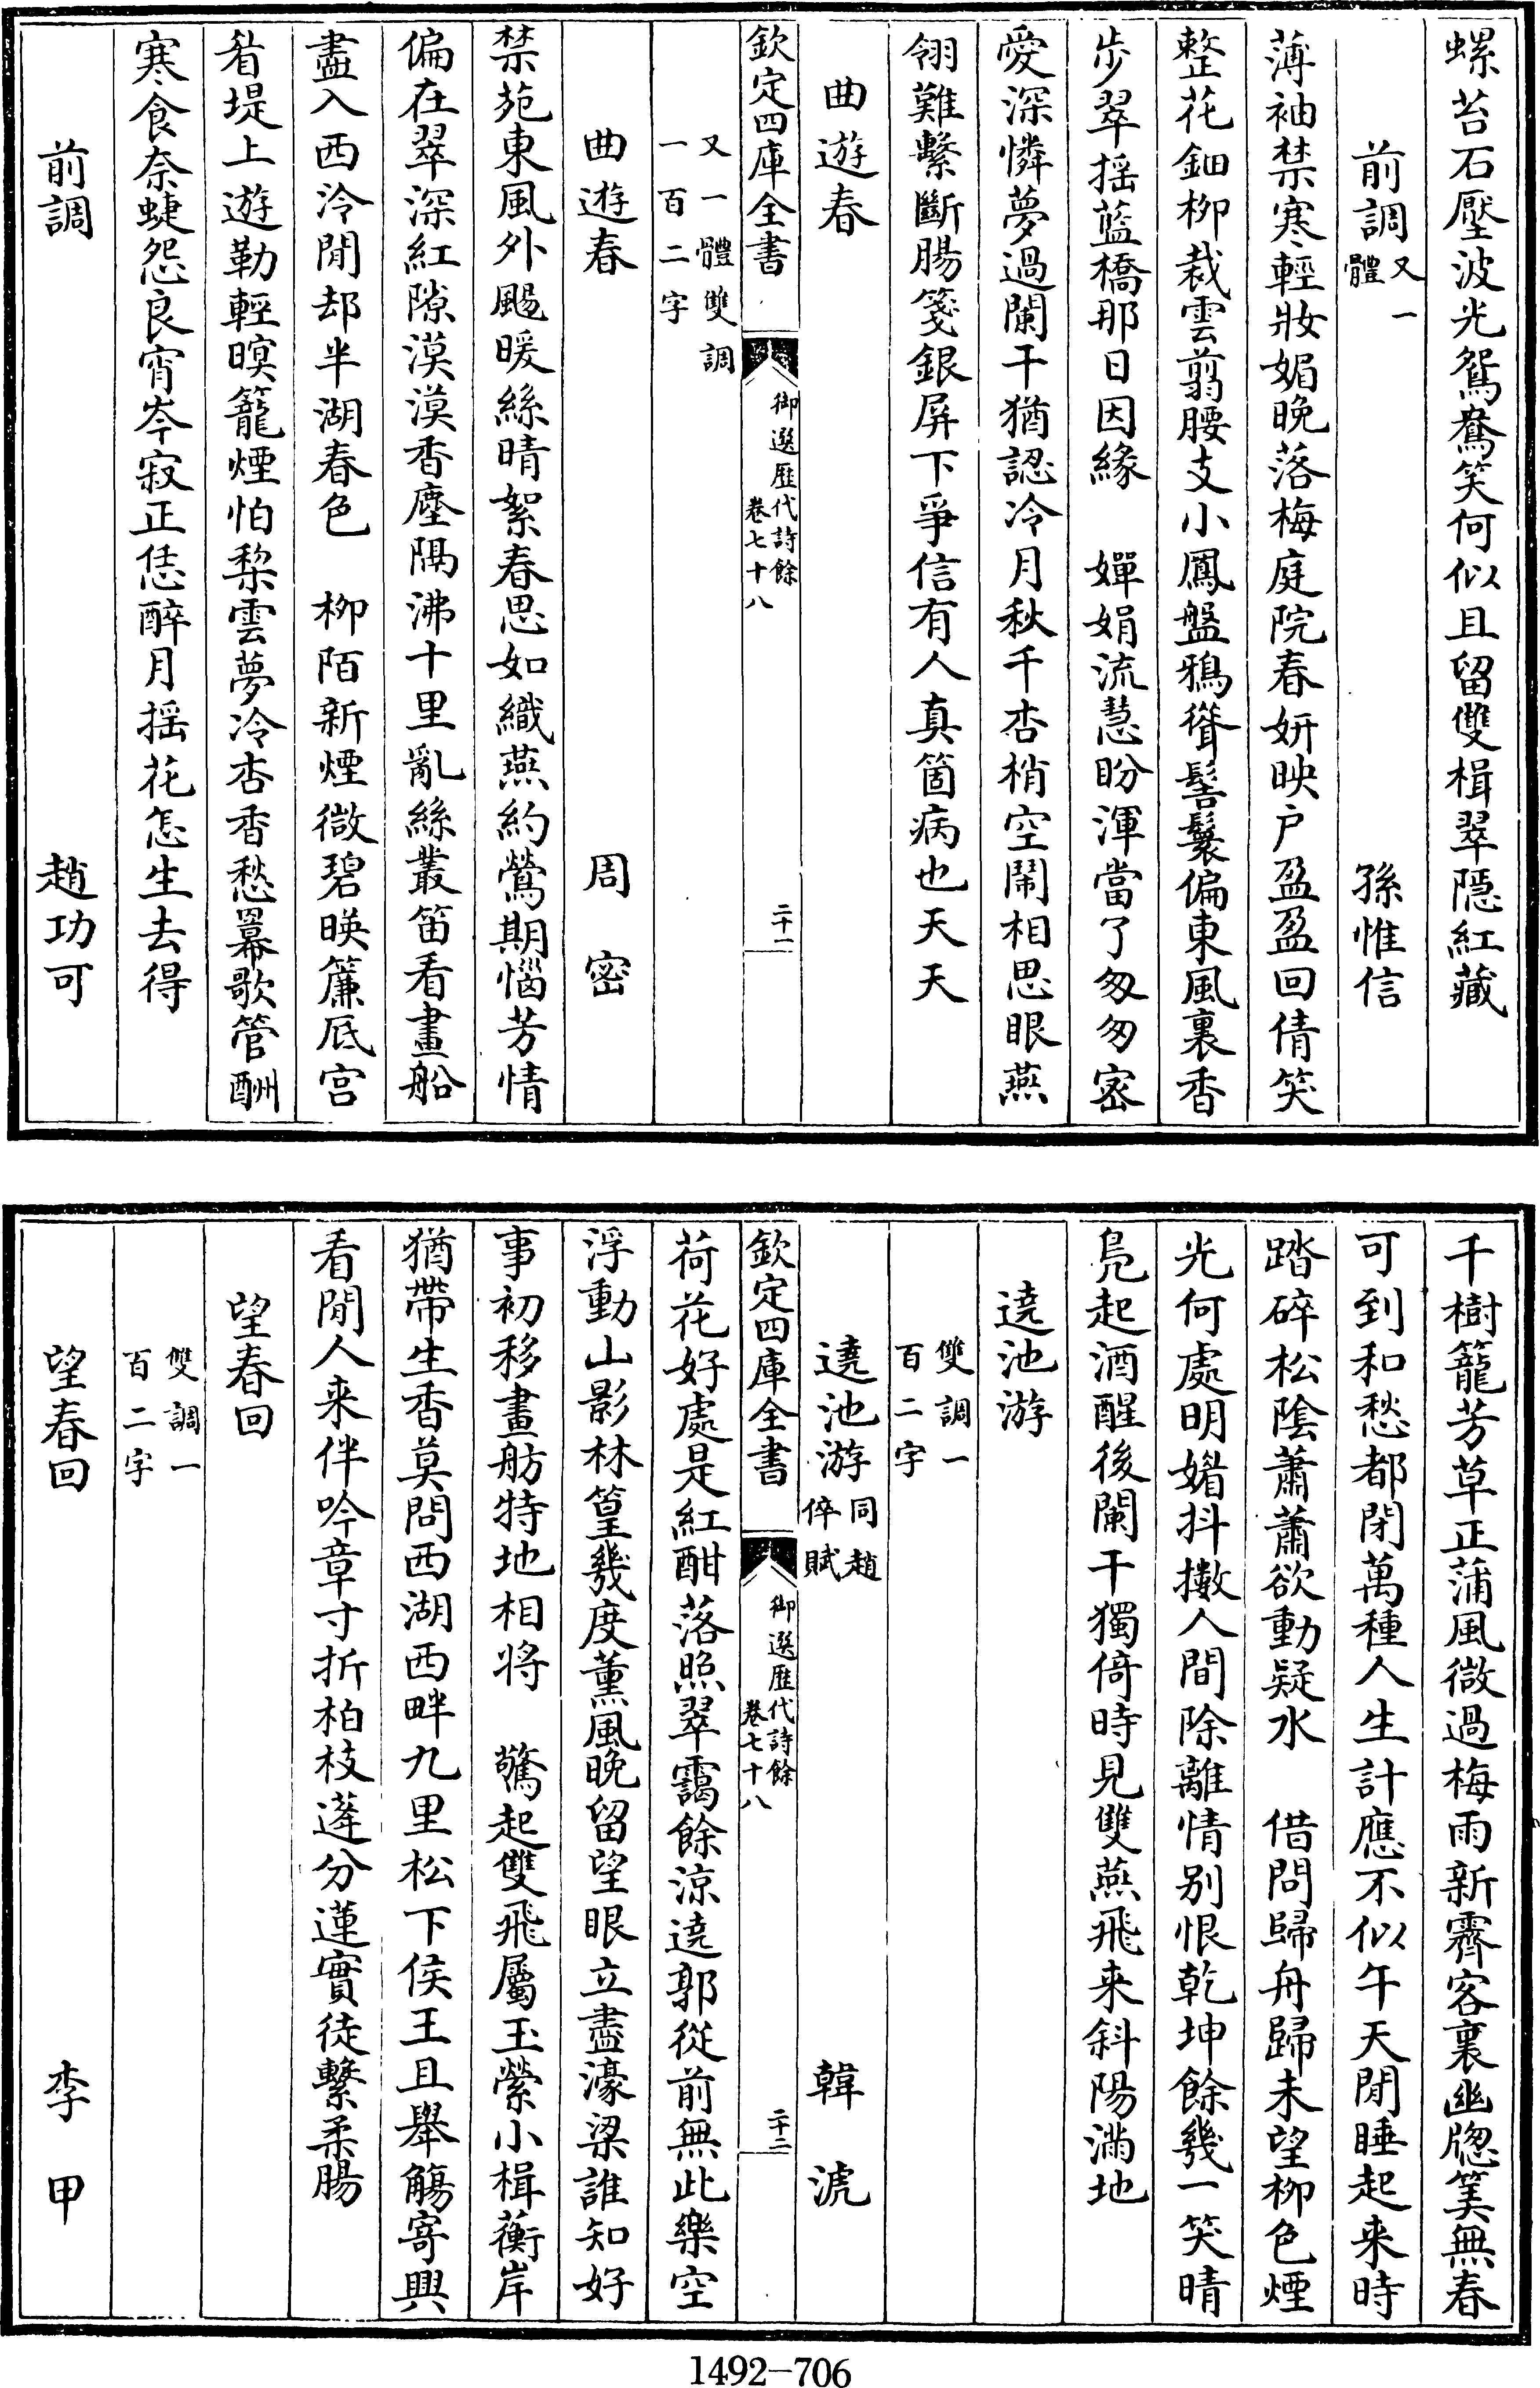 螺苔石壓波光鴛鴦笑何似且留雙楫翠隱紅藏
前調又一體　孫惟信
薄袖禁寒輕妝媚晚落梅庭院春妍映户盈盈回倩笑
整花鈿柳裁雲翦腰支小鳳盤鴉聳髻鬟偏東風裏香
步翠揺藍橋那日因緣　嬋娟流慧盼渾當了匆匆密
愛深憐夢過闌干猶認冷月秋千杏梢空鬧相思眼燕
翎難繫斷腸箋銀屏下爭信有人真箇病也天天
曲遊春
欽定四庫全書　御選歴代詩餘卷七十八　二十一
又一體雙調一百二字
曲遊春　周密
禁苑東風外颺暖絲晴絮春思如織燕約鶯期惱芳情
偏在翠深紅隙漠漠香塵隔沸十里亂絲叢笛看畫船
盡入西泠閒却半湖春色　柳陌新煙微碧暎簾底宫
眉堤上遊勒輕暝籠煙怕梨雲夢冷杏香愁羃歌管酬
寒食奈蜨怨良宵岑寂正恁醉月揺花怎生去得
前調　趙功可
千樹籠芳草正蒲風微過梅雨新霽客裏幽牕筭無春
可到和愁都閉萬種人生計應不似午天閒睡起来時
踏碎松陰蕭蕭欲動疑水　借問歸舟歸未望柳色煙
光何處明媚抖擻人間除離情别恨乾坤餘幾一笑晴
凫起酒醒後闌干獨倚時見雙燕飛来斜陽滿地
遶池游
雙調一百二字
遶池游同趙倅賦　韓淲
欽定四庫全書　御選歴代詩餘卷七十八　二十二
荷花好處是紅酣落照翠靄餘涼遶郭從前無此樂空
浮動山影林篁幾度薫風晚留望眼立盡濠梁誰知好
事初移畫舫特地相将　驚起雙飛屬玉縈小楫蘅岸
猶帶生香莫問西湖西畔九里松下侯王且舉觴寄興
看閒人来伴吟章寸折柏枝蓬分蓮實徒繫柔腸
望春回
雙調一百二字
望春回　李甲
1492-706